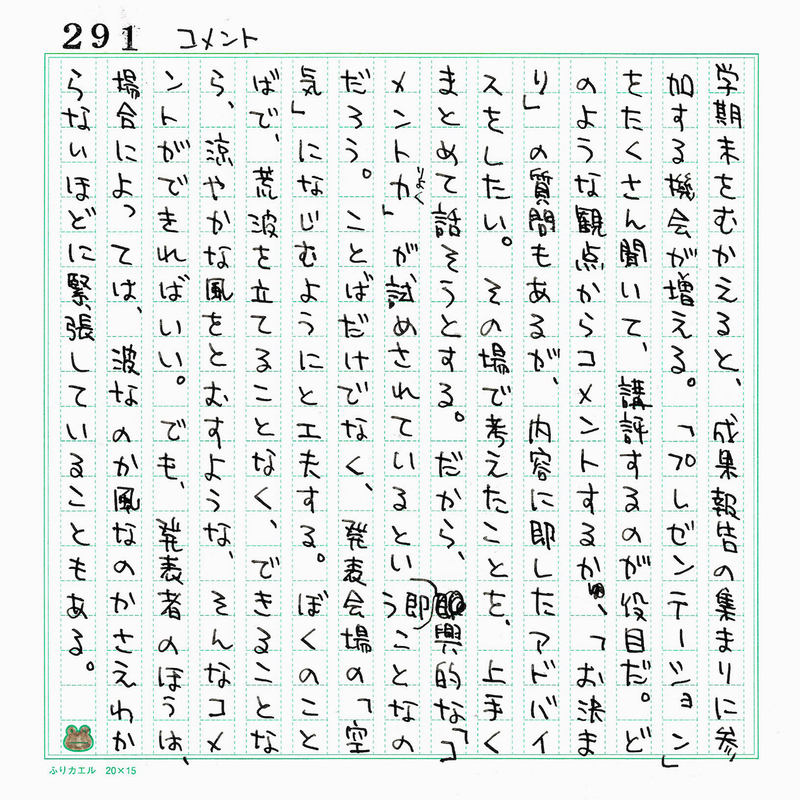 291 コメント
学期末をむかえると、成果報告の集まりに参
加する機会が増える。「プレゼンテーション」
をたくさん聞いて、講評するのが役目だ。ど
のような観点からコメントするか、「お決ま
り」の質問もあるが、内容に即したアドバイ
スをしたい。その場で考えたことを、上手く
まとめて話そうとする。だから、即興的な「コ
メント力」が試めされているということなの
だろう。ことばだけでなく、発表会場の「空
気」になじむようにと工夫する。ぼくのこと
ばで、荒波を立てることなく、できることな
ら、涼やかな風をとむすような、そんなコメ
ントができればいい。でも、発表者のほうは、
場合によっては、波なのか風なのかさえわか
らないほどに緊張していることもある。
りょく
即
ふりカエル 20×15